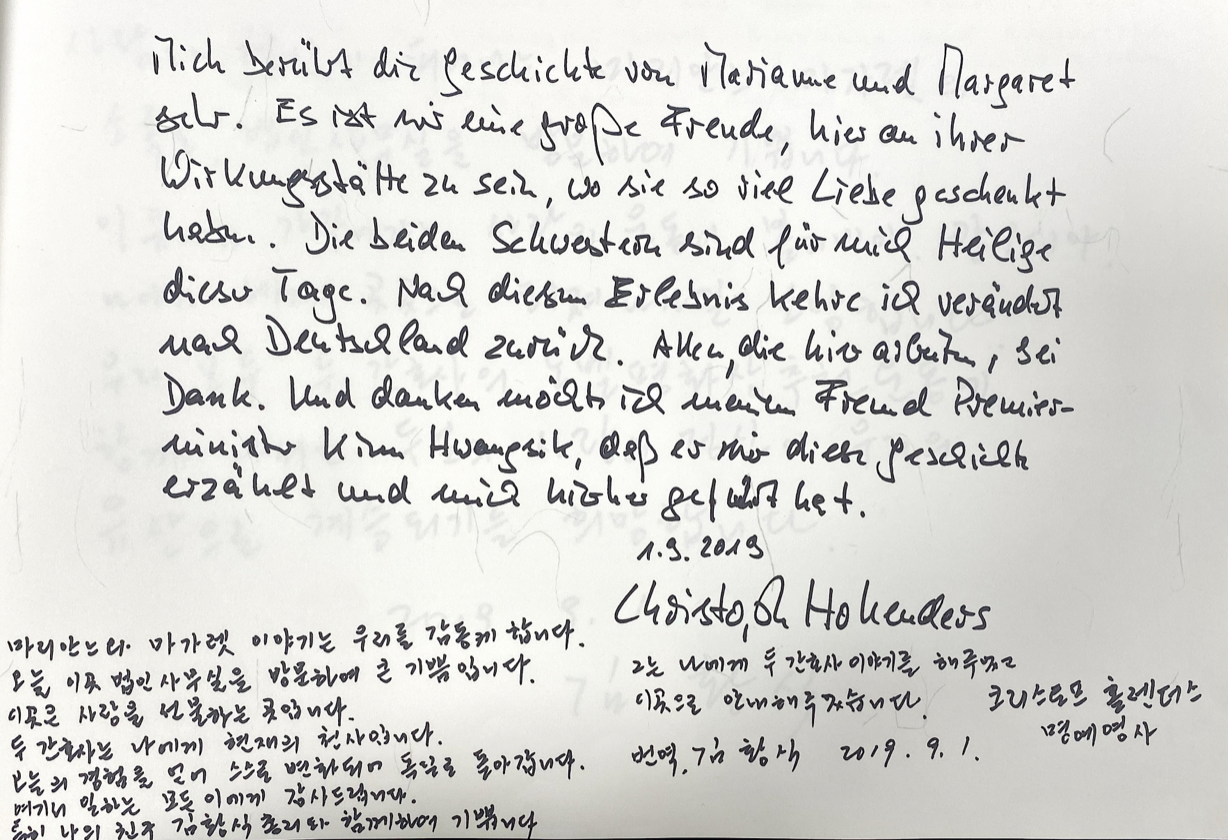 Mich berührt die Geschichte von Marianne und Margaret
sehr. Es ist mir eine große Freude, hier an ihrer
Wirkungsstätte zu sein, wo sie so viel Liebe geschenkt
haben. Die beiden Schwestern sind für mich Heilige
dieser Tage. Nach diesem Erlebnis kehre ich verändert
nach Deutschland zurück. Allen, die hier arbeiten, sei
Dank. Und danken möchte ich meinem Freund Premier-
minister Kim Hwangsik, daß er mir diese Geschichte
erzählt und mich hierher geführt hat.
1.9.2019
Christoph Hollenders
마리안느와 마가렛 이야기는 우리를 감동케 합니다.
오늘 이곳 법인사무실을 방문하여 큰 기쁨입니다.
이곳은 사랑을 선물하는 곳입니다.
두 간호사는 나에게 현재의 천사입니다.
오늘의 경험을 얻어 스스로 변화되어 독일로 돌아갑니다.
여기서 일하는 모든 이에게 감사드립니다.
특히 나의 친구 김황식 총리와 함께하여 기쁩니다
그는 나에게 두 간호사 이야기를 해주었고
이곳으로 안내해주었습니다.
크리스토프 홀렌더스
명예영사
번역. 김황식 2019. 9. 1.